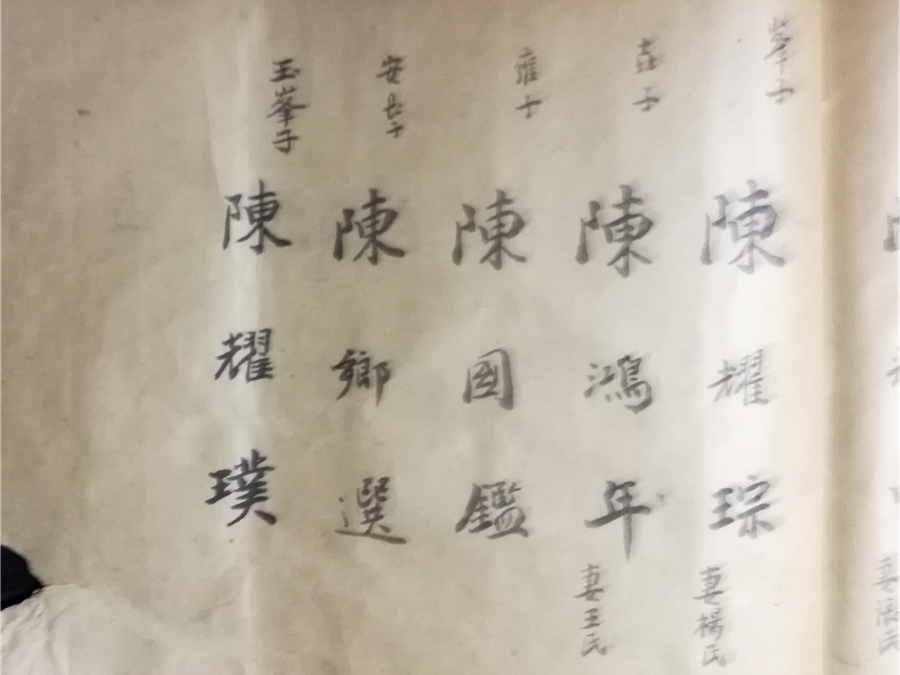 峯子
陳耀琮
妻楊氏
子
陳鴻年
妻王氏
雍子
陳國鑑
安子
陳鄉選
玉峯子
陳耀璞
妻張氏